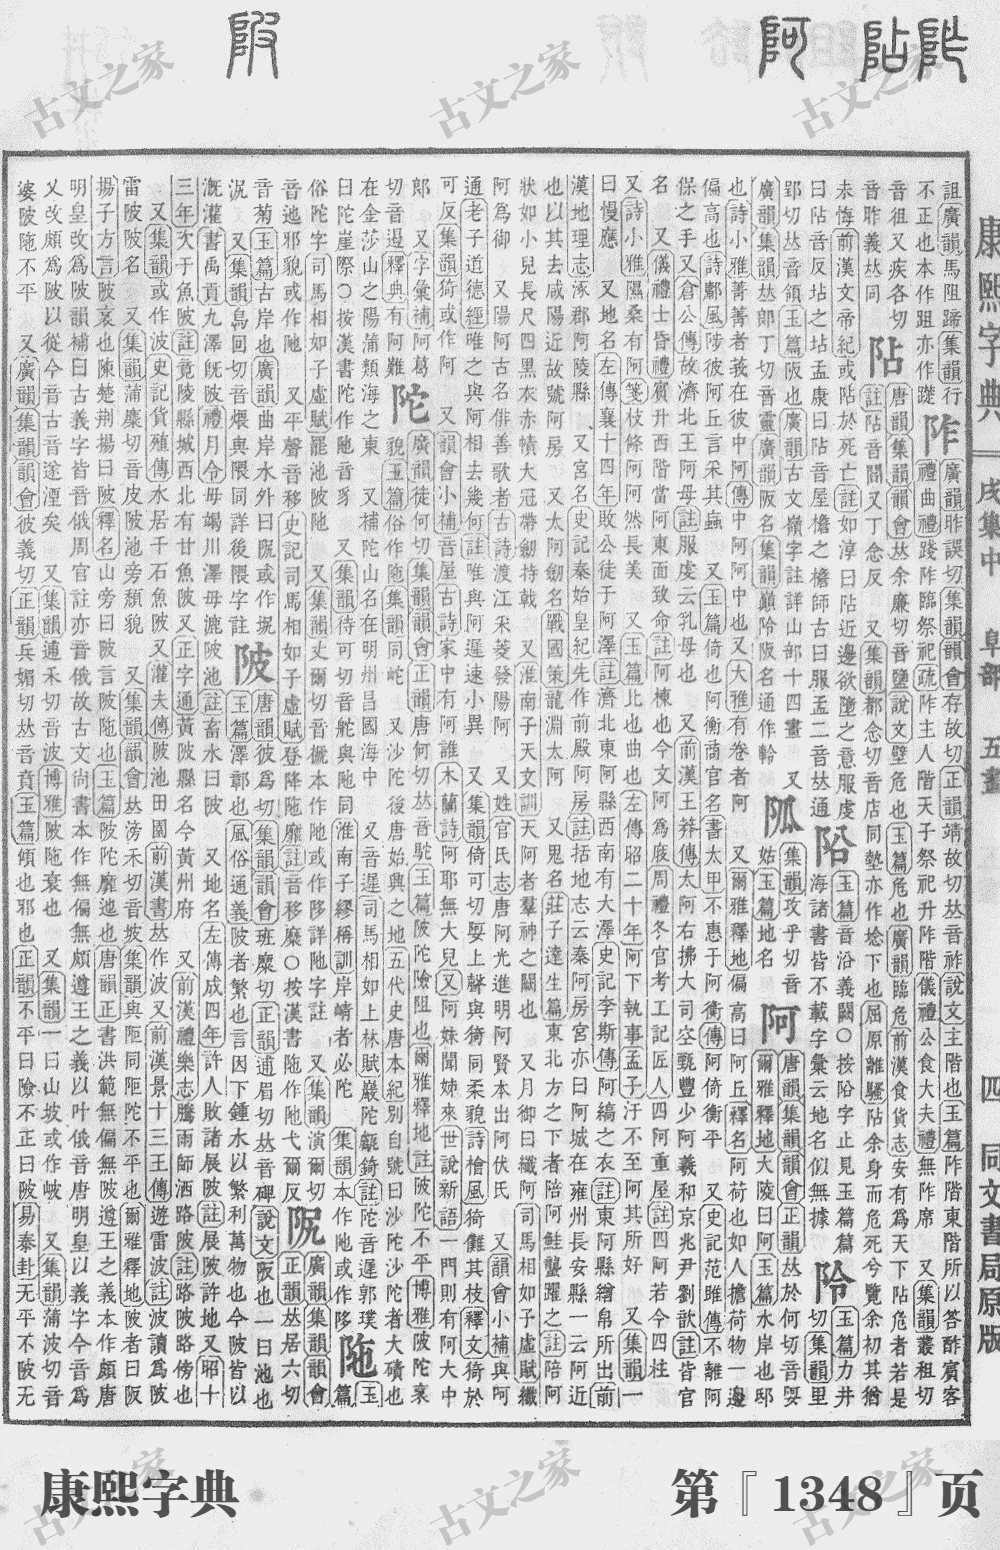 康熙字典
戌集中
阜部
五畫
四
同文書局原版
詛廣韻馬阻蹄集韻行
不正也本作跙亦作䟶
阼
廣韻昨誤切集韻韻會存故切正韻靖故切𠀤音祚說文主階也玉篇阼階東階所以答酢賓客
禮曲禮踐阼臨祭祀疏阼主人階天子祭祀升阼階儀禮公食大夫禮無阼席 又集韻叢租切
音祖又疾各切
音昨義𠀤同
阽
唐韻集韻韻會𠀤余廉切音鹽說文壁危也玉篇危也廣韻臨危前漢食貨志安有爲天下阽危者若是
註阽音閻又丁念反 又集韻都念切音店同墊亦作埝下也屈原離騷阽余身而危死兮覽余初其猶
未悔前漢文帝紀或阽於死亡註如淳曰阽近邊欲墮之意服虔
曰阽音反坫之坫孟康曰阽音屋檐之檐師古曰服孟二音𠀤通
𨸝
玉篇音沿義闕○按𨸝字止見玉篇
海諸書皆不載字彙云地名似無據
阾
玉篇力井
切集韻里
郢切𠀤音領玉篇阪也廣韻古文嶺字註詳山部十四畫 又
廣韻集韻𠀤郎丁切音靈廣韻阪名集韻巔阾阪名通作軨
𨸗
集韻攻乎切音
姑玉篇地名
阿
唐韻集韻韻會正韻𠀤於何切音娿
爾雅釋地大陵曰阿玉篇水岸也邸
也詩小雅菁菁者莪在彼中阿傳中阿阿中也又大雅有卷者阿 又爾雅釋地偏高曰阿丘釋名阿荷也如人擔荷物一邊
偏高也詩鄘風陟彼阿丘言采其蝱 又玉篇倚也阿衡商官名書太甲不惠于阿衡傳阿倚衡平 又史記范雎傳不離阿
保之手又倉公傳故濟北王阿母註服虔云乳母也 又前漢王莽傳太阿右拂大司空甄豐少阿羲和京兆尹劉歆註皆官
名 又儀禮士昏禮賓升西階當阿東面致命註阿棟也今文阿爲庪周禮冬官考工記匠人四阿重屋註四阿若今四柱
又詩小雅隰桑有阿箋枝條阿阿然長美 又玉篇北也曲也左傳昭二十年阿下執事孟子汙不至阿其所好 又集韻一
曰慢應 又地名左傳襄十四年敗公徒于阿澤註濟北東阿縣西南有大澤史記李斯傳阿縞之衣註東阿縣繒帛所出前
漢地理志涿郡阿陵縣 又宮名史記秦始皇紀先作前殿阿房註括地志云秦阿房宮亦曰阿城在雍州長安縣一云阿近
也以其去咸陽近故號阿房 又太阿劒名戰國策龍淵太阿 又鬼名莊子達生篇東北方之下者陪阿鮭蠪躍之註陪阿
狀如小兒長尺四黑衣赤幘大冠帶劒持戟 又淮南子天文訓天阿者羣神之闕也 又月御曰纖阿司馬相如子虛賦纖
阿爲御 又陽阿古名俳善歌者古詩渡江采菱發陽阿 又姓官氏志唐阿光進明阿賢本出阿伏氏 又韻會小補與阿
通老子道德經唯之與阿相去幾何註唯與阿遲速小異 又集韻倚可切娿上聲與猗同柔貌詩檜風猗儺其枝釋文猗於
可反集韻猗或作阿 又韻會小補音屋古詩家中有阿誰木蘭詩阿耶無大兒又阿妹聞姊來世說新語一門則有阿大中
郞 又字彙補阿葛
切音遏釋典有阿難
陀
廣韻徒何切集韻韻會正韻唐何切𠀤音駝玉篇陂陀險阻也爾雅釋地註陂陀不平博雅陂陀衺
貌玉篇俗作陁集韻同岮 又沙陀後唐始興之地五代史唐本紀別自號曰沙陀沙陀者大磧也
在金莎山之陽蒲類海之東 又補陀山名在明州昌國海中 又音遲司馬相如上林賦巖陀甗錡註陀音遲郭璞
曰陀崖際○按漢書陀作阤音豸 又集韻待可切音舵與阤同淮南子繆稱訓岸崝者必陀 集韻本作阤或作陊
陁
玉
篇
俗陀字司馬相如子虛賦罷池陂阤 又集韻丈爾切音搋本作阤或作陊詳阤字註 又集韻演爾切
音迆邪貌或作阤 又平聲音移史記司馬相如子虛賦登降陁靡註音移糜○按漢書陁作阤弋爾反
𨸰
廣韻集韻韻會
正韻𠀤居六切
音菊玉篇古岸也廣韻曲岸水外曰𨸰或作坭
陂
唐韻彼爲切集韻韻會班糜切正韻逋眉切𠀤音碑說文阪也一曰池也
玉篇澤鄣也風俗通義陂者繁也言因下鍾水以繁利萬物也今陂皆以
漑灌書禹貢九澤旣陂禮月令毋竭川澤毋漉陂池註畜水曰陂 又地名左傳成四年許人敗諸展陂註展陂許地又昭十
三年次于魚陂註竟陵縣城西北有甘魚陂又正字通黃陂縣名今黃州府 又前漢禮樂志騰雨師洒路陂註路陂路傍也
又集韻或作波史記貨殖傳水居千石魚陂又灌夫傳陂池田園前漢書𠀤作波又前漢景十三王傳遊雷波註波讀爲陂
雷陂陂名 又集韻蒲糜切音皮陂池旁頹貌 又集韻韻會𠀤滂禾切音坡集韻與陁同阤陀不平也爾雅釋地陂者曰阪
揚子方言陂衺也陳楚荆揚曰陂釋名山旁曰陂言陂陁也玉篇陂陀靡迆也唐韻正書洪範無偏無陂遵王之義本作頗唐
明皇改爲陂韻補曰古義字皆音俄周官註亦音俄故古文尚書本作無偏無頗遵王之義以叶俄音唐明皇以義字今音爲
乂改頗爲陂以從今音古音遂湮矣 又集韻逋禾切音波博雅陂陁衰也 又集韻一曰山坡或作岥 又集韻蒲波切音
婆陂陁不平 又廣韻集韻韻會彼義切正韻兵媚切𠀤音賁玉篇傾也邪也正韻不平曰險不正曰陂易泰卦无平不陂无
康熙字典
第『1348』页
古文之家